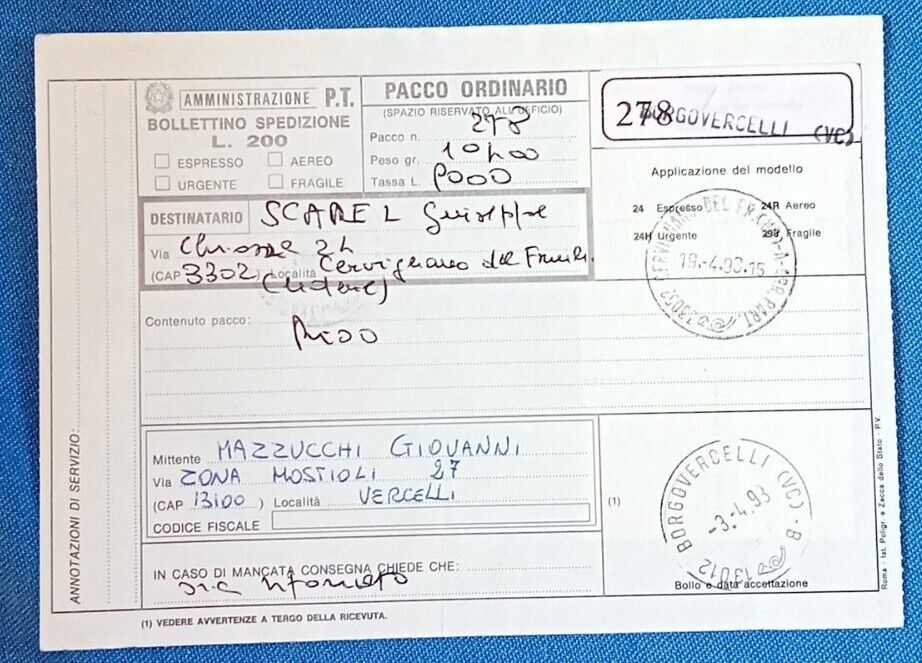 AMMINISTRAZIONE P.T.
BOLLETTINO SPEDIZIONE
L. 200
ESPRESSO AEREO
URGENTE FRAGILE
PACCO ORDINARIO
(SPAZIO RISERVATO ALL'UFFICIO)
Pacco n. 278
Peso gr.
Tassa L.
278 BORGOVERCELLI (VC)
Applicazione del modello
24 Espresso 24R Aereo
24H Urgente 29B Fragile
19.-4.93.15
DESTINATARIO SCAREL
Via 24
(CAP 3302) Località Cervignano del
Contenuto pacco:
Mittente MAZZUCCHI GIOVANNI
Via ZONA MOSTIOLI 27
(CAP 13100) Località VERCELLI
CODICE FISCALE
(1)
BORGOVERCELLI (VC) - B
-3.4.93
13012
Bollo e data accettazione
IN CASO DI MANCATA CONSEGNA CHIEDE CHE:
(1) VEDERE AVVERTENZE A TERGO DELLA RICEVUTA.
ANNOTAZIONI DI SERVIZIO:
Roma - Ist. Poligr. e Zecca dello Stato - P.V.